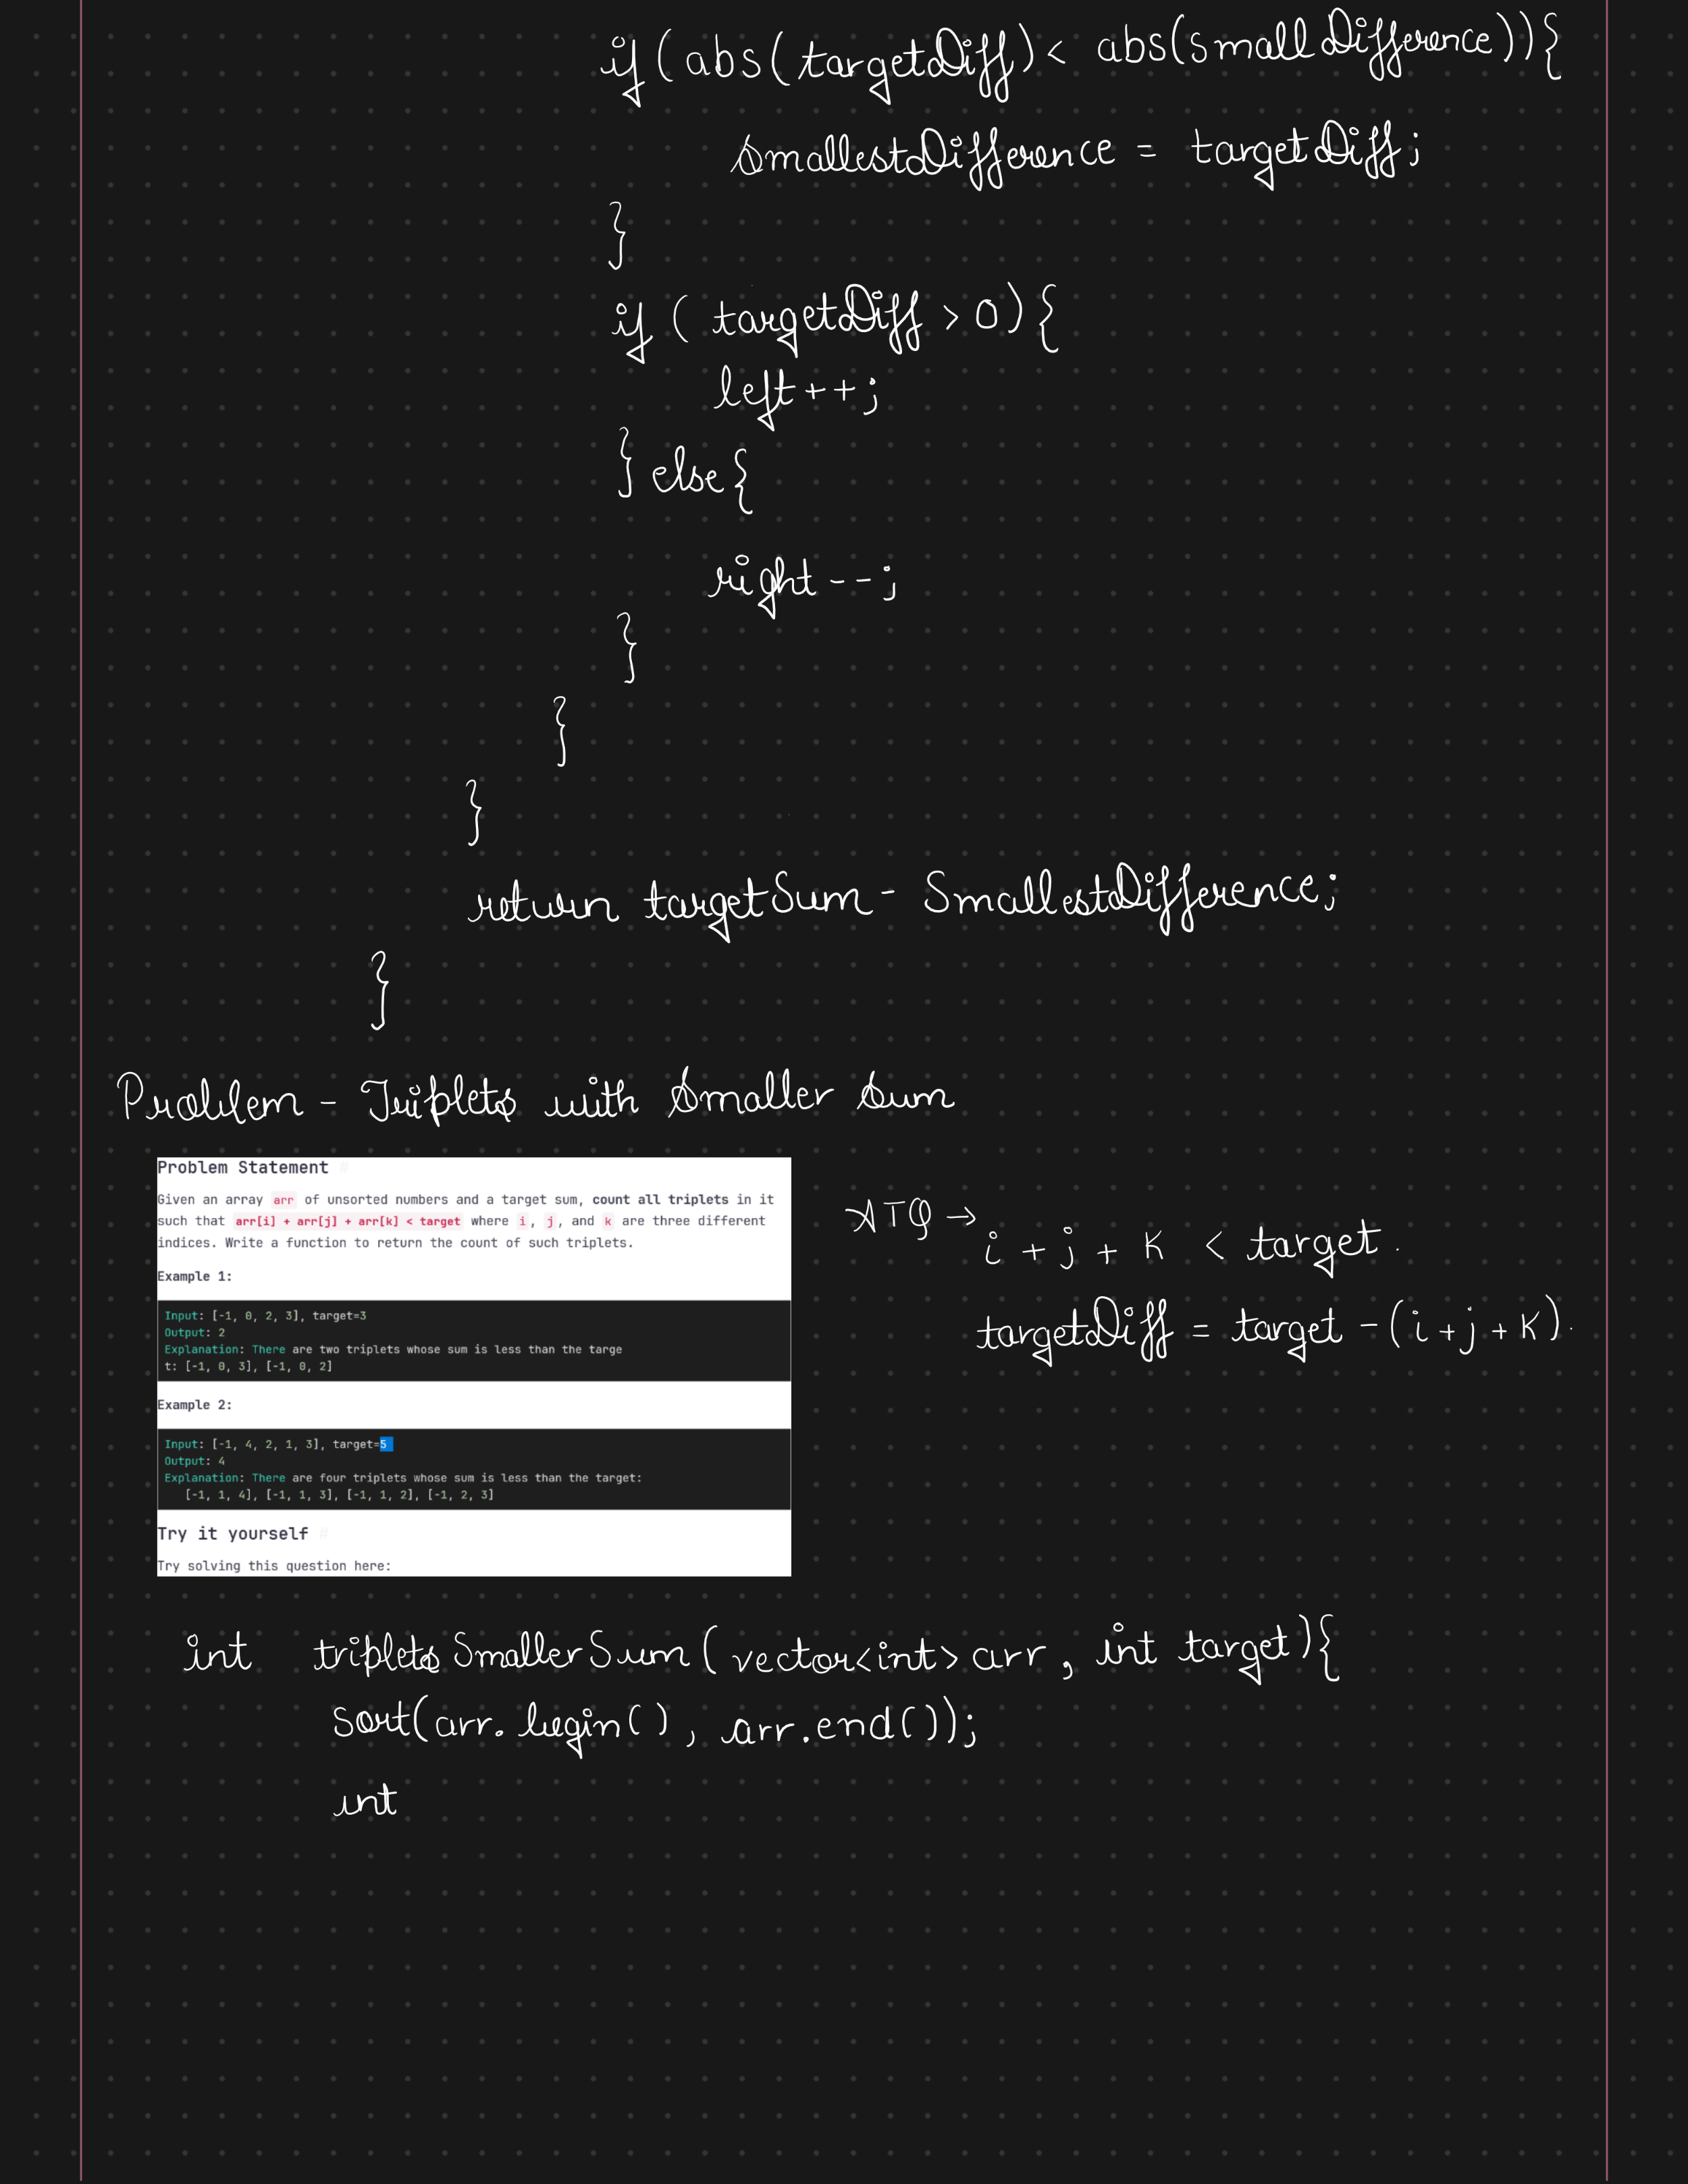 if (abs(targetDiff) < abs(smallDifference)){
smallestDifference = targetDiff;
}
if ( targetDiff > 0) {
left++;
} else {
right--;
}
}
}
return targetSum - SmallestDifference;
}
Problem - Triplets with Smaller Sum
Problem Statement #
Given an array arr of unsorted numbers and a target sum, count all triplets in it
such that arr[i] + arr[j] + arr[k] < target where i, j, and k are three different
indices. Write a function to return the count of such triplets.
Example 1:
Input: [-1, 0, 2, 3], target=3
Output: 2
Explanation: There are two triplets whose sum is less than the targe
t: [-1, 0, 3], [-1, 0, 2]
Example 2:
Input: [-1, 4, 2, 1, 3], target=5
Output: 4
Explanation: There are four triplets whose sum is less than the target:
[-1, 1, 4], [-1, 1, 3], [-1, 1, 2], [-1, 2, 3]
Try it yourself #
Try solving this question here:
ATQ →
i + j + K < target.
targetDiff = target - (i + j + K).
int tripletsSmallerSum ( vector<int> arr, int target){
Sort(arr.begin(), arr.end());
int